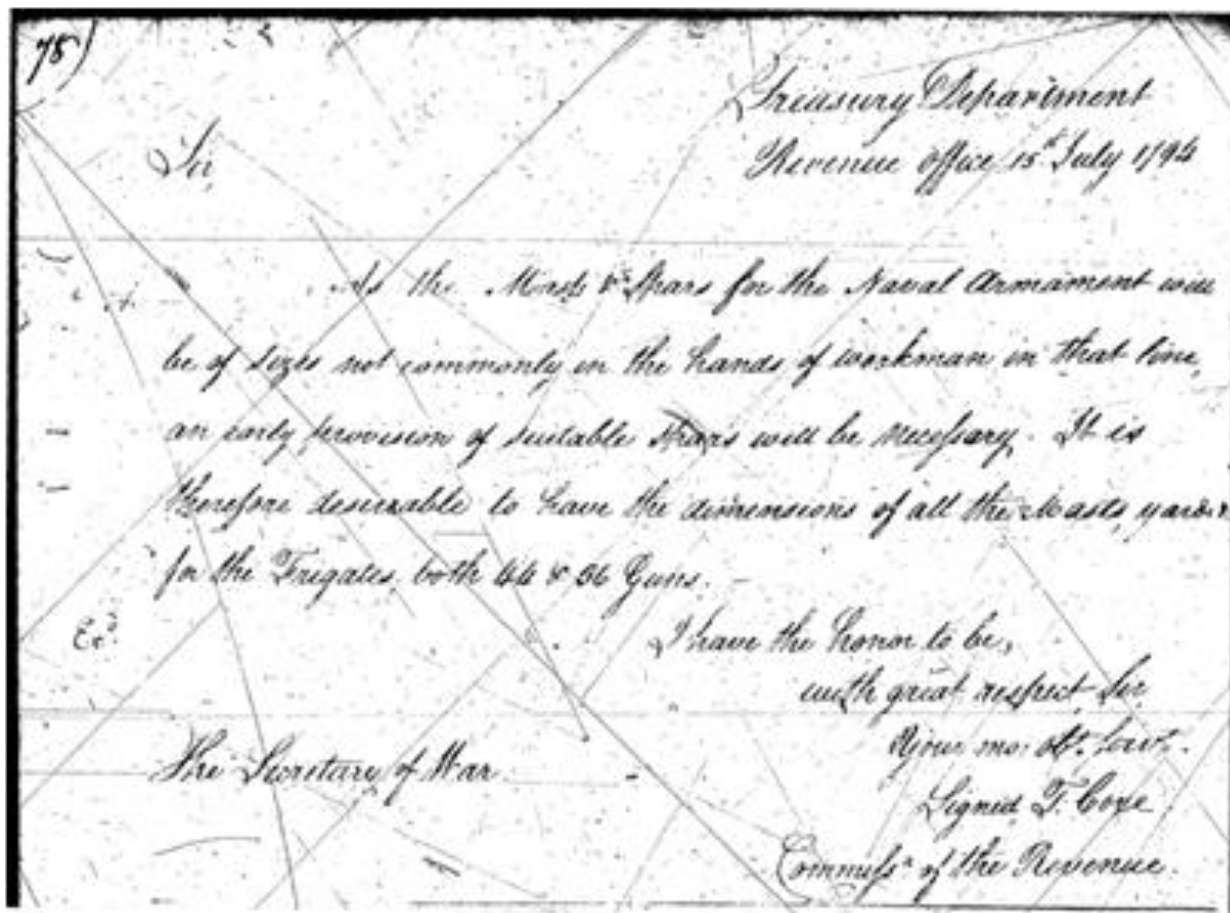 78)
Treasury Department
Revenue office 15th July 1794
Sir,
As the Masts & Spars for the Naval Armament will
be of sizes not commonly in the hands of workman in that line,
an early provision of suitable Spars will be necessary. It is
therefore desireable to have the dimensions of all the Masts, yards &
for the Frigates, both 44 & 36 Guns. —
I have the honor to be,
with great respect, Sir
Your mo: obt. Servt.
The Secretary of War
Signed, T. Coxe
Commissr of the Revenue.